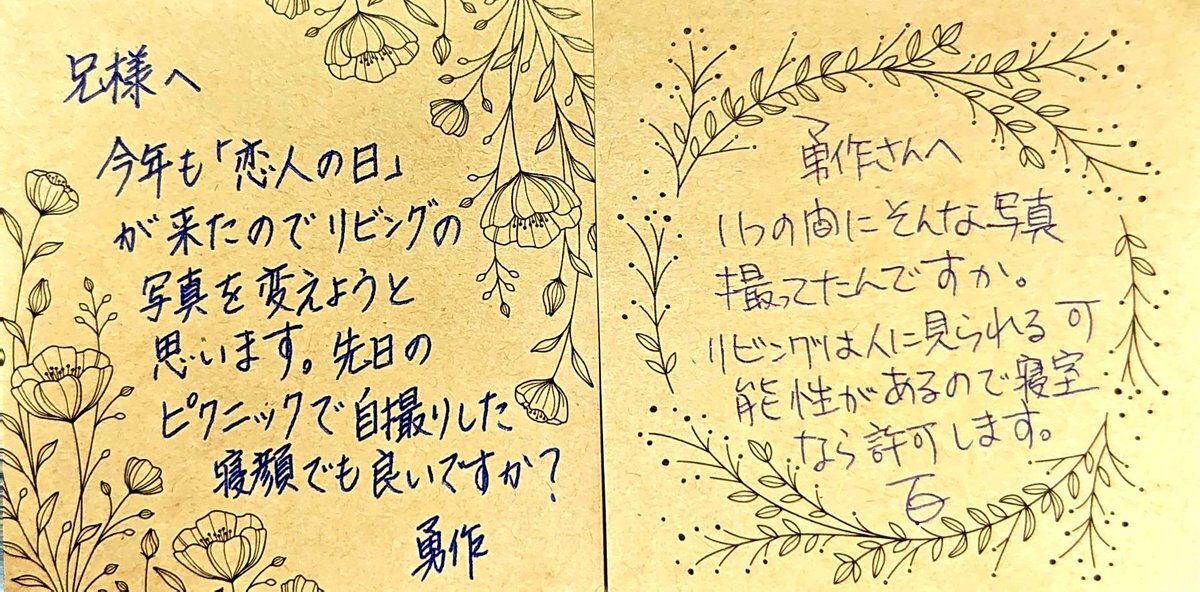 兄様へ
今年も「恋人の日」
が来たのでリビングの
写真を変えようと
思います。先日の
ピクニックで自撮りした
寝顔でも良いですか？
勇作
勇作さんへ
いつの間にそんな写真
撮ってたんですか。
リビングは人に見られる可
能性があるので寝室
なら許可します。
百